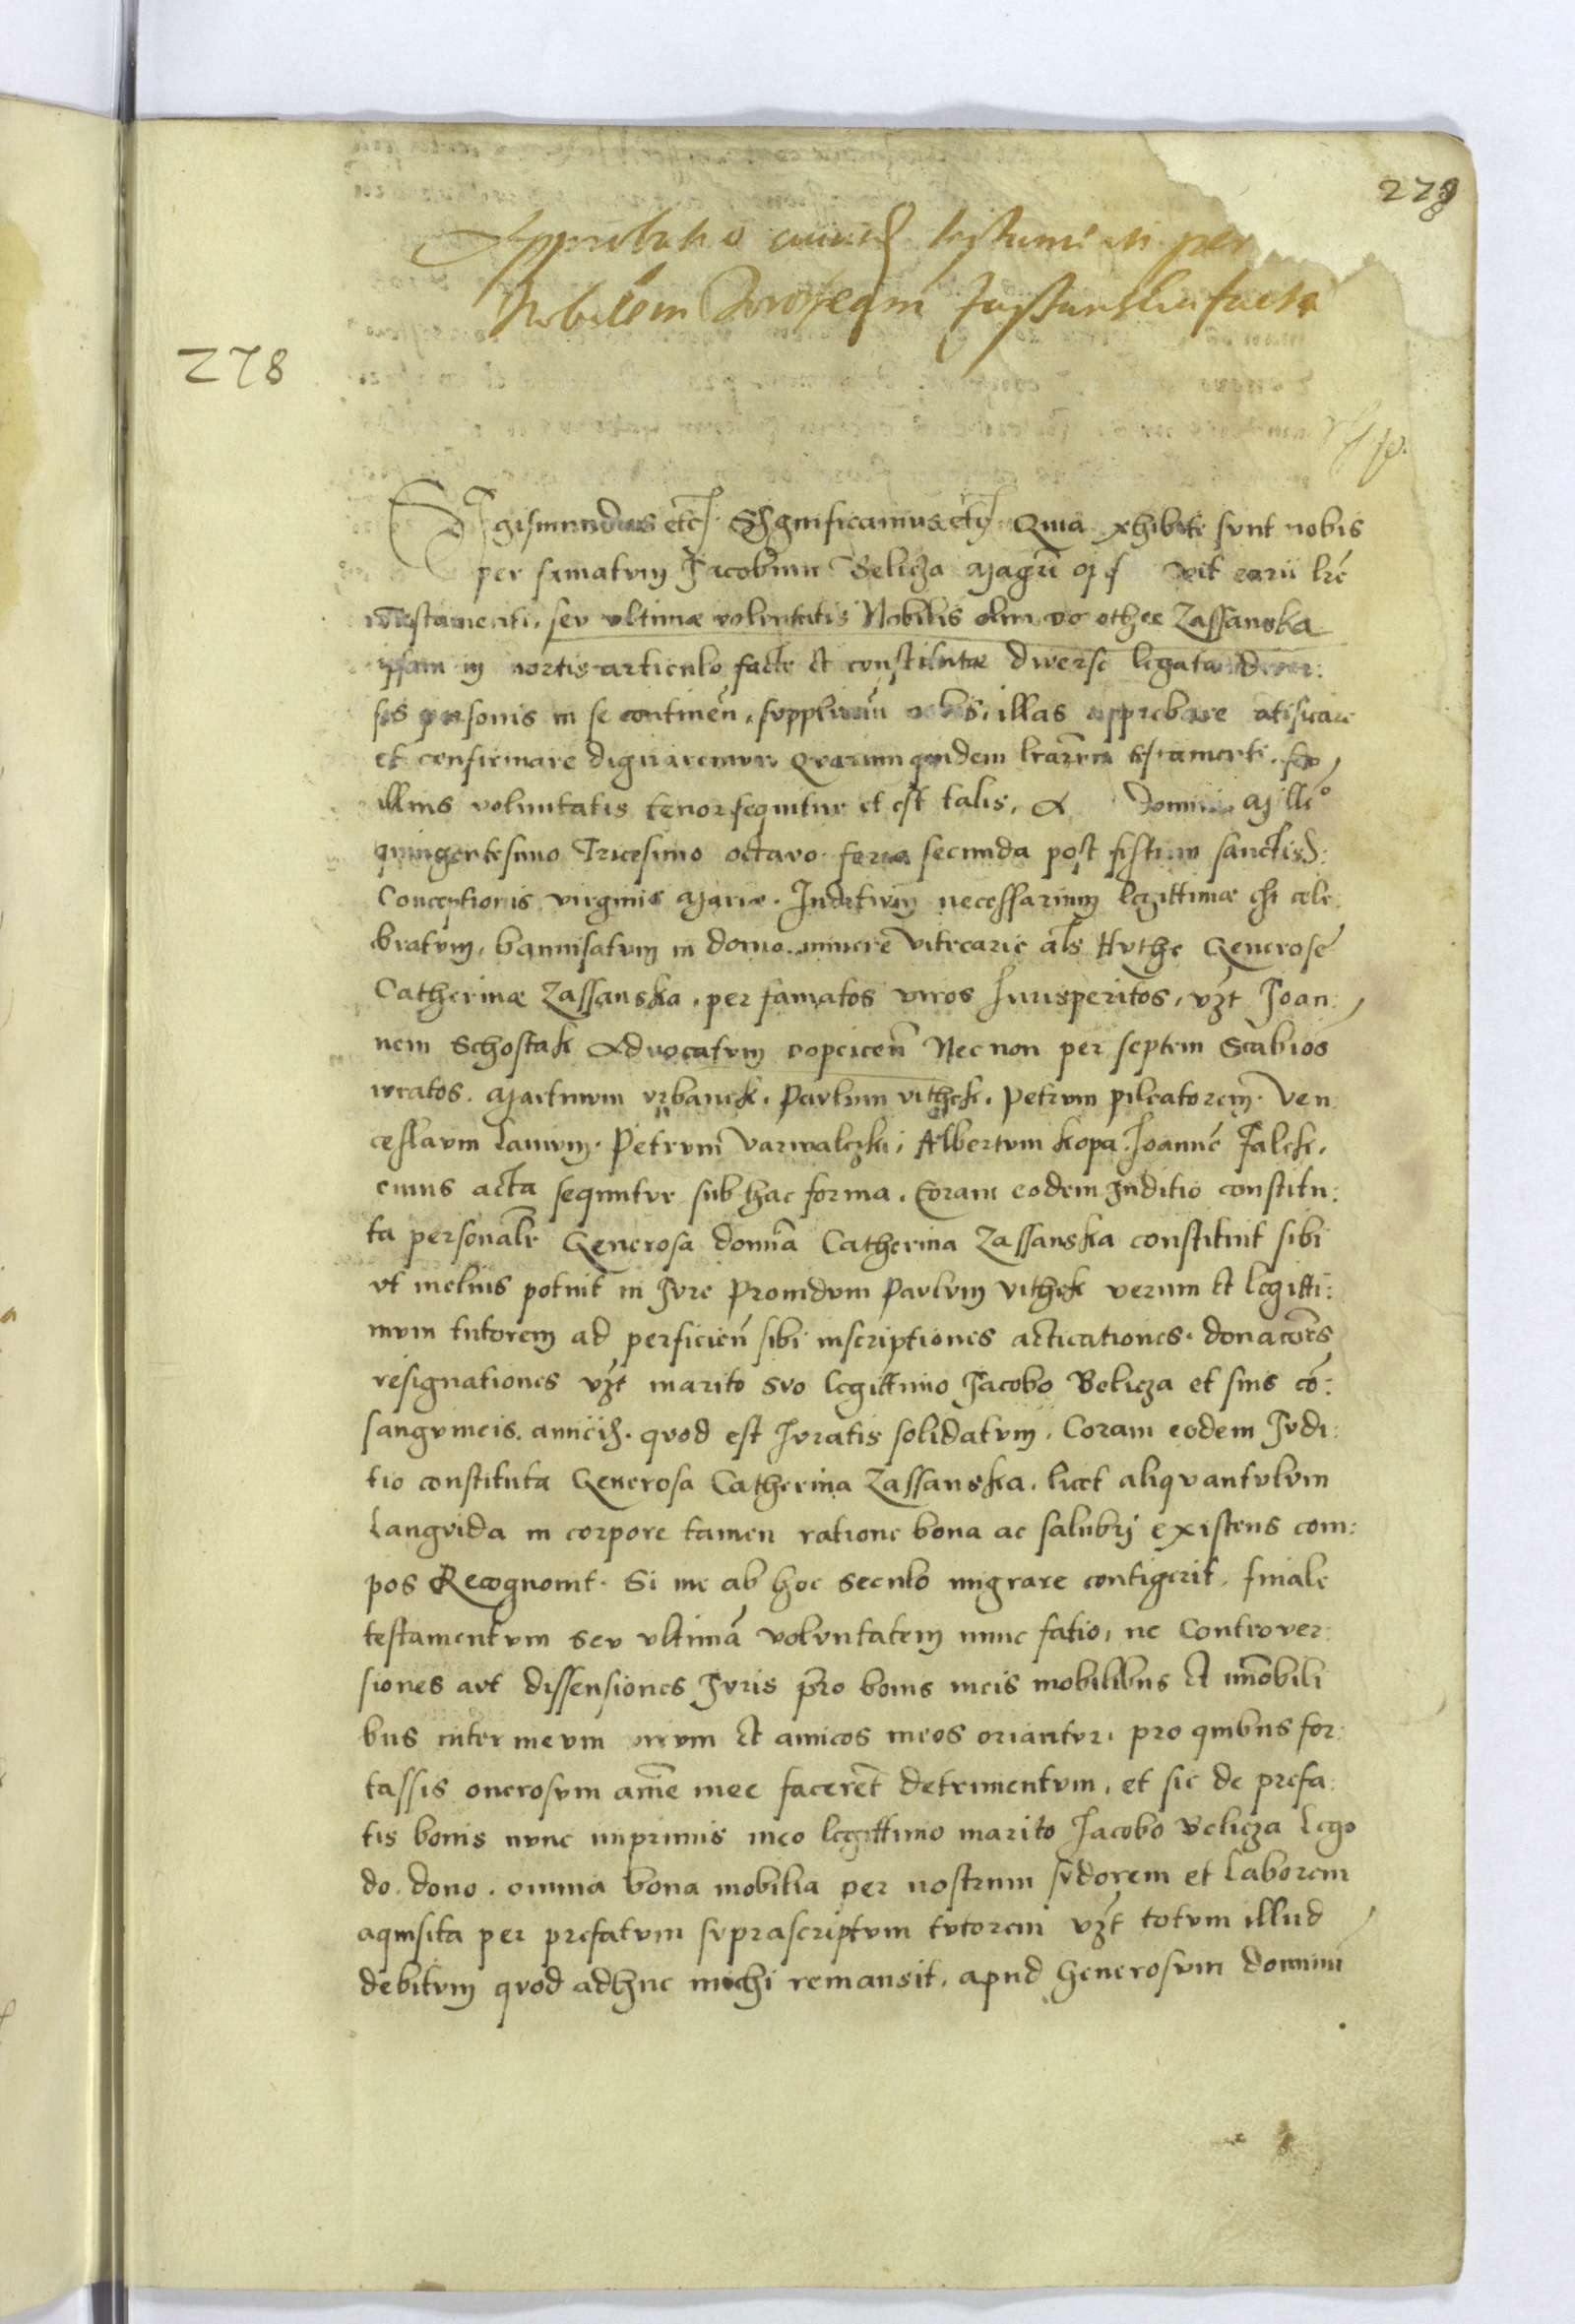 278
Approbatio cuiusd testamenti per
Nobilem Dorotheam Zassanska facti
278
Sigismundus etc Significamus etc Quia exhibite sunt nobis
per famatum Jacobum Belicza Magrũ earũ lrẽ
testamenti, seu vltimæ voluntatis Nobilis olim dorotheæ Zassanska
ipsam in mortis articulo factæ et constitutæ diversa legata diver:
sis personis in se continẽn, supplicatũ nobis, illas approbare ratificare
et confirmare dignaremur Quarum quidem lrarum testamenti, seu
illius voluntatis tenor sequitur et est talis, A Domini Millõ
quingentesimo Tricesimo octavo feria secunda post festum sanctiss:
Conceptionis virginis Mariæ. Juditium necessarium legittimæ cele
bratum, bannisatum in domo minere vitrearie als Huthe Generose
Catherinæ Zassanska, per famatos viros Jurisperitos, vzt Joan:
nem Schostak Advocatum popcicen̄ Nec non per septem Scabios
iuratos. Martinum vrbanek, Paulum vithek, Petrum pileatorem. Ven
ceslaum Lanium. Petrum Varwalczki, Albertum kopa, Joannẽ Falck,
cuius acta sequntur sub hac forma. Coram eodem Juditio constitu:
ta personalr Generosa domĩa Catherina Zassanska constituit sibi
vt melius potuit in Jure Providum Paulum vithek verum et legitti:
mum tutorem ad perficien̄ sibi inscriptiones acticationes, donacões
resignationes vzt marito suo legittimo Jacobo Belicza et suis cõ:
sanguineis, amiciss. quod est Juratis solidatum. Coram eodem Judi:
tio constituta Generosa Catherina Zassanska, licet aliquantulum
Languida in corpore tamen ratione bona ac salubrj existens com:
pos Recognouit. Si me ab hoc seculo migrare contigerit, finale
testamentum seu vltimã voluntatem nunc fatio, ne Controver:
siones aut dissensiones Juris pro bonis meis mobilibus et im̄obili
bus inter meum virum et amicos meos oriantur, pro quibus for:
tassis onerosum aiẽ mee facerẽt detrimentum, et sic de prefa:
tis bonis nunc inprimis meo legittimo marito Jacobo Belicza lego
do, dono, omnia bona mobilia per nostrum sudorem et laborem
aquisita per prefatum suprascriptum tutorem vzt totum illud
debitum quod adhuc michi remansit, apud Generosum dominũ